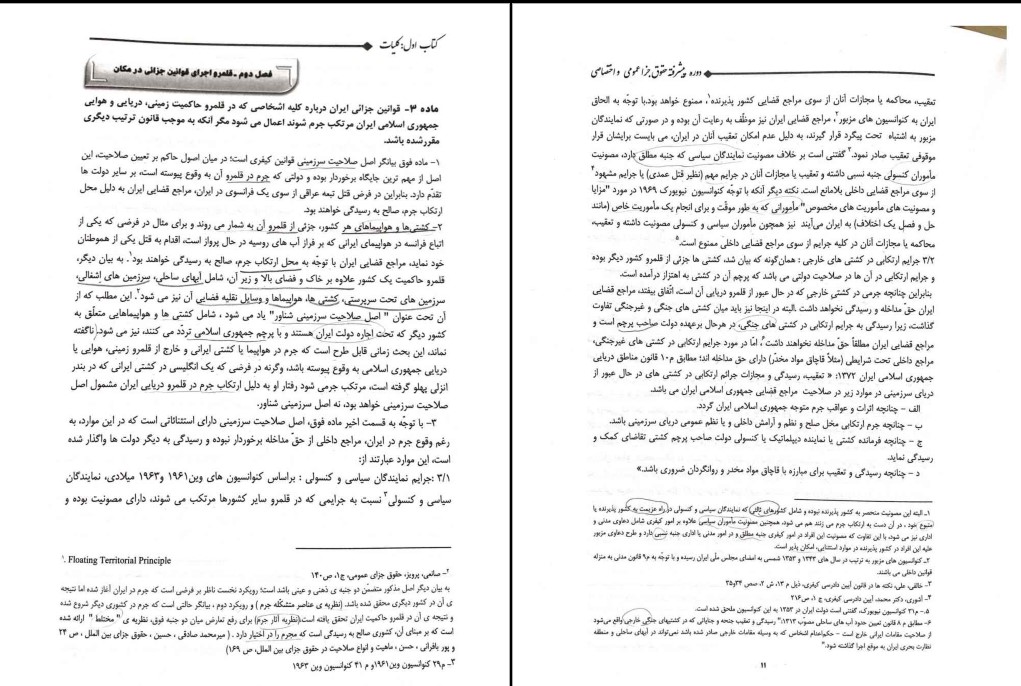 کتاب اول: کلیات
فصل دوم ـ قلمرو اجرای قوانین جزائی در مکان
ماده ۳- قوانین جزائی ایران درباره کلیه اشخاصی که در قلمرو حاکمیت زمینی، دریایی و هوایی
جمهوری اسلامی ایران مرتکب جرم شوند اعمال می شود مگر آنکه به موجب قانون ترتیب دیگری
مقررشده باشد.
۱- ماده فوق بیانگر اصل صلاحیت سرزمینی قوانین کیفری است؛ در میان اصول حاکم بر تعیین صلاحیت، این
اصل از مهم ترین جایگاه برخوردار بوده و دولتی که جرم در قلمرو آن به وقوع پیوسته است، بر سایر دولت ها
تقدّم دارد. بنابراین در فرض قتل تبعه عراقی از سوی یک فرانسوی در ایران، مراجع قضایی ایران به دلیل محل
ارتکاب جرم، صالح به رسیدگی خواهند بود.
۲- کشتی‌ها و هواپیماهای هر کشور، جزئی از قلمرو آن به شمار می روند و برای مثال در فرضی که یکی از
اتباع فرانسه در هواپیمای ایرانی که بر فراز آب های روسیه در حال پرواز است، اقدام به قتل یکی از هموطنان
خود نماید، مراجع قضایی ایران با توجّه به محل ارتکاب جرم، صالح به رسیدگی خواهند بود۱. به بیان دیگر،
قلمرو حاکمیت یک کشور علاوه بر خاک و فضای بالا و زیر آن، شامل آبهای ساحلی، سرزمین های اشغالی،
سرزمین های تحت سرپرستی، کشتی ها، هواپیماها و وسایل نقلیه فضایی آن نیز می شود۲. این مطلب که از
آن تحت عنوان " اصل صلاحیت سرزمینی شناور" یاد می شود ، شامل کشتی ها و هواپیماهایی متعلّق به
کشور دیگر که تحت اجاره دولت ایران هستند و با پرچم جمهوری اسلامی تردّد می کنند، نیز می شود. ناگفته
نماند، این بحث زمانی قابل طرح است که جرم در هواپیما یا کشتی ایرانی و خارج از قلمرو زمینی، هوایی یا
دریایی جمهوری اسلامی به وقوع پیوسته باشد، وگرنه در فرضی که یک انگلیسی در کشتی ایرانی که در بندر
انزلی پهلو گرفته است، مرتکب جرمی شود رفتار او به دلیل ارتکاب جرم در قلمرو دریایی ایران مشمول اصل
صلاحیت سرزمینی خواهد بود، نه اصل سرزمینی شناور.
۳- با توجّه به قسمت اخیر ماده فوق، اصل صلاحیت سرزمینی دارای استثنائاتی است که در این موارد، به
رغم وقوع جرم در ایران، مراجع داخلی از حقّ مداخله برخوردار نبوده و رسیدگی به دیگر دولت ها واگذار شده
است، این موارد عبارتند از:
۳/۱ :جرایم نمایندگان سیاسی و کنسولی : براساس کنوانسیون های وین۱۹۶۱ و۱۹۶۳ میلادی، نمایندگان
سیاسی و کنسولی۳ نسبت به جرایمی که در قلمرو سایر کشورها مرتکب می شوند، دارای مصونیت بوده و
۱. Floating Territorial Principle
۲- صانعی، پرویز، حقوق جزای عمومی، ج۱، ص۱۴۰
به بیان دیگر اصل مذکور متضمّن دو جنبه ی ذهنی و عینی باشد است؛ رویکرد نخست ناظر بر فرضی است که جرم در ایران آغاز شده اما نتیجه
ی آن در کشور دیگری محقق شده باشد. (نظریه ی عناصر متشکّله جرم ) و رویکرد دوم ، بیانگر حالتی است که جرم در کشوری دیگر شروع شده
و نتیجه ی آن در قلمرو حاکمیت ایران تحقق یافته است.(نظریه آثار جرم) برای رفع تعارض میان دو جنبه فوق، نظریه ی " مختلط " ارائه شده
است که بر مبنای آن، کشوری صالح به رسیدگی است که مجرم را در اختیار دارد . ( میرمحمد صادقی ، حسین ، حقوق جزای بین الملل ، ص ۲۴
و پور بافرانی ، حسن ، ماهیت و انواع صلاحیت در حقوق جزای بین الملل، ص ۱۶۹)
۳- م۲۹ کنوانسیون وین۱۹۶۱و م ۴۱ کنوانسیون وین ۱۹۶۳
دوره پیشرفته حقوق جزا عمومی و اختصاصی
تعقیب، محاکمه یا مجازات آنان از سوی مراجع قضایی کشور پذیرنده۱، ممنوع خواهد بود.با توجّه به الحاق
ایران به کنوانسیون های مزبور۲، مراجع قضایی ایران نیز موظّف به رعایت آن بوده و در صورتی که نمایندگان
مزبور به اشتباه تحت پیگرد قرار گیرند، به دلیل عدم امکان تعقیب آنان در ایران، می بایست برایشان قرار
موقوفی تعقیب صادر نمود.۳ گفتنی است بر خلاف مصونیت نمایندگان سیاسی که جنبه مطلق دارد، مصونیت
مأموران کنسولی جنبه نسبی داشته و تعقیب یا مجازات آنان در جرایم مهم (نظیر قتل عمدی) یا جرایم مشهود۴
از سوی مراجع قضایی داخلی بلامانع است. نکته دیگر آنکه با توجّه کنوانسیون نیویورک ۱۹۶۹ در مورد "مزایا
و مصونیت های مأموریت های مخصوص" مأمورانی که به طور موقّت و برای انجام یک مأموریت خاص (مانند
حل و فصل یک اختلاف) به ایران می‌آیند نیز همچون مأموران سیاسی و کنسولی مصونیت داشته و تعقیب،
محاکمه یا مجازات آنان در کلیه جرایم از سوی مراجع قضایی داخلی ممنوع است.۵
۳/۲ جرایم ارتکابی در کشتی های خارجی : همان‌گونه که بیان شد، کشتی ها جزئی از قلمرو کشور دیگر بوده
و جرایم ارتکابی در آن ها در صلاحیت دولتی می باشد که پرچم آن در کشتی به اهتزاز درآمده است.
بنابراین چنانچه جرمی در کشتی خارجی که در حال عبور از قلمرو دریایی آن است، اتّفاق بیفتد، مراجع قضایی
ایران حقّ مداخله و رسیدگی نخواهد داشت .البته در اینجا نیز باید میان کشتی های جنگی و غیرجنگی تفاوت
گذاشت، زیرا رسیدگی به جرایم ارتکابی در کشتی های جنگی، در هرحال برعهده دولت صاحب پرچم است و
مراجع قضایی ایران مطلقاً حقّ مداخله نخواهند داشت۶. امّا در مورد جرایم ارتکابی در کشتی های غیرجنگی،
مراجع داخلی تحت شرایطی (مثلاً قاچاق مواد مخدّر) دارای حق مداخله اند؛ مطابق م۱۰ قانون مناطق دریایی
جمهوری اسلامی ایران ۱۳۷۲: « تعقیب، رسیدگی و مجازات جرائم ارتکابی در کشتی های در حال عبور از
دریای سرزمینی در موارد زیر در صلاحیت مراجع قضایی جمهوری اسلامی ایران می باشد.
الف – چنانچه اثرات و عواقب جرم متوجه جمهوری اسلامی ایران گردد.
ب – چنانچه جرم ارتکابی مخل صلح و نظم و آرامش داخلی و یا نظم عمومی دریای سرزمینی باشد.
ج – چنانچه فرمانده کشتی یا نماینده دیپلماتیک یا کنسولی دولت صاحب پرچم کشتی تقاضای کمک و
رسیدگی نماید.
د – چنانچه رسیدگی و تعقیب برای مبارزه با قاچاق مواد مخدر و روانگردان ضروری باشد.»
۱ـ البته این مصونیت منحصر به کشور پذیرنده نبوده و شامل کشورهای ثالثی که نمایندگان سیاسی و کنسولی در راه عزیمت به کشور پذیرنده یا
متبوع خود ، در آن دست به ارتکاب جرم می زنند هم می شود، همچنین مصونیت مأموران سیاسی علاوه بر امور کیفری شامل دعاوی مدنی و
اداری نیز می شود، با این تفاوت که مصونیت این افراد در امور کیفری جنبه مطلق و در امور مدنی یا اداری جنبه نسبی دارد و طرح دعاوی مزبور
علیه این افراد در کشور پذیرنده در موارد استثنایی، امکان پذیر است.
۲ـ کنوانسیون های مزبور به ترتیب در سال های ۱۳۴۳ و ۱۳۵۳ شمسی به امضای مجلس ملّی ایران رسیده و با توجّه به م۹ قانون مدنی به منزله
قوانین داخلی می باشند.
۳- خالقی، علی، نکته ها در قانون آیین دادرسی کیفری، ذیل م ۱۳، ش ۲، صص ۳۴و۳۵
۴- آشوری، دکتر محمد، آیین دادرسی کیفری، ج ۱، ص۲۱۶
۵.- م۳۱ کنوانسیون نیویورک، گفتنی است دولت ایران در ۱۳۵۳ به این کنوانسیون ملحق شده است.
۶- مطابق م ۸ قانون تعیین حدود آب های ساحلی مصوّب ۱۳۱۳:" رسیدگی و تعقیب جنحه و جنایاتی که در کشتیهای جنگی خارجی واقع می‌شود
از صلاحیت مقامات ایرانی خارج است – حکم‌اعدام اشخاص که به وسیله مقامات خارجی صادر شده باشد نمی‌تواند در آبهای ساحلی و منطقه
نظارت بحری ایران به موقع اجرا گذاشته شود."
۱۱